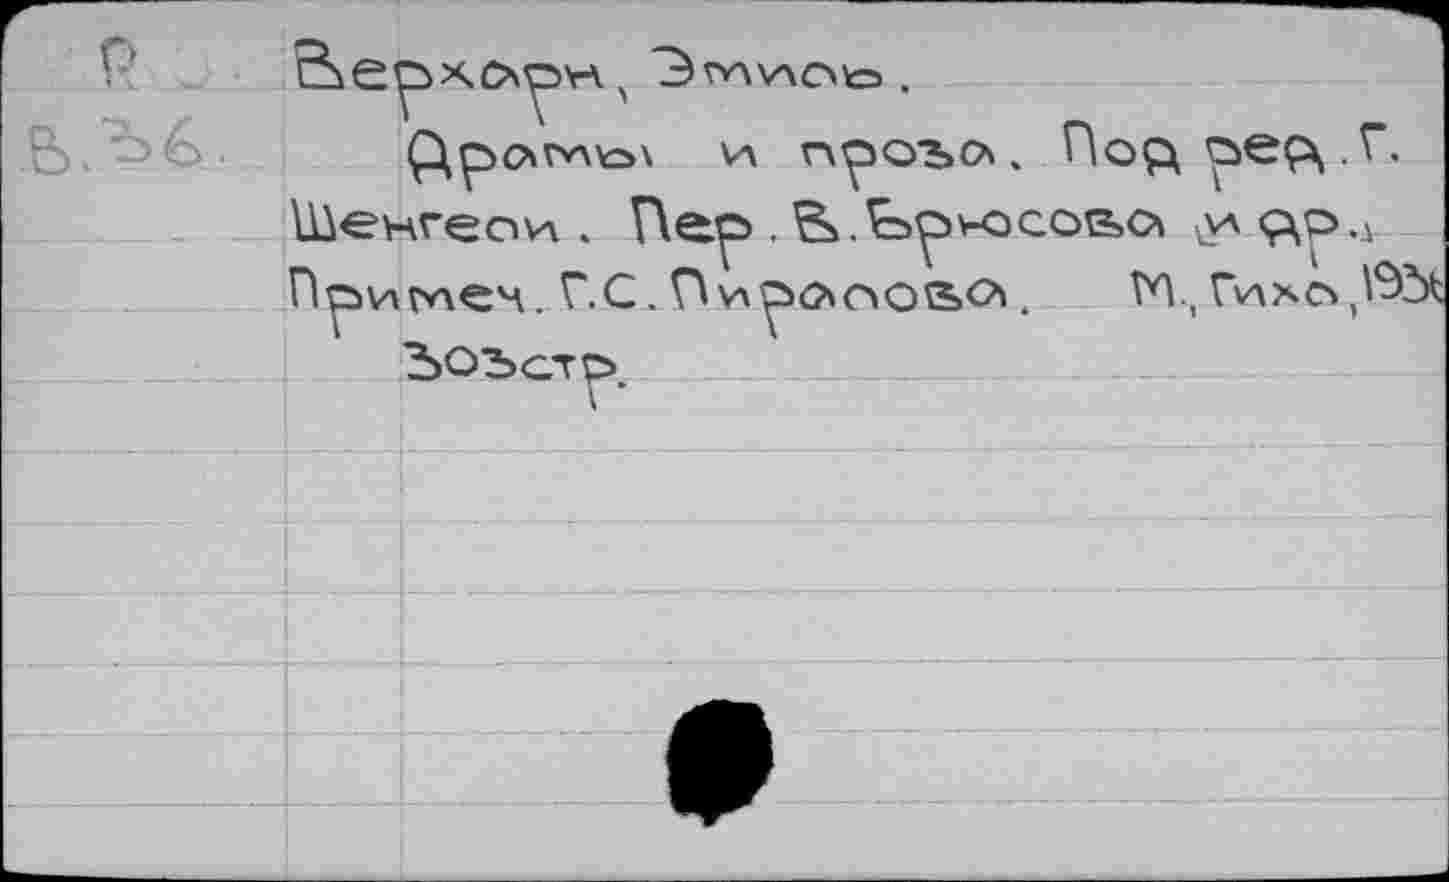 Р Верхарн, Эмиль.
В.36. Драмы и проза. Под ред. Г.
Шенгели. Пер. В. Брюсова и др.,
Примеч. Г.С. Пиралова. М., Гихл,
303стр.